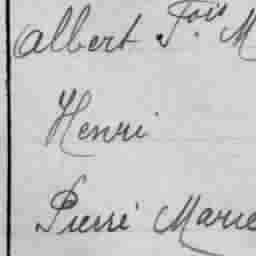 Albert Fois M
Henri
Pierre Marie